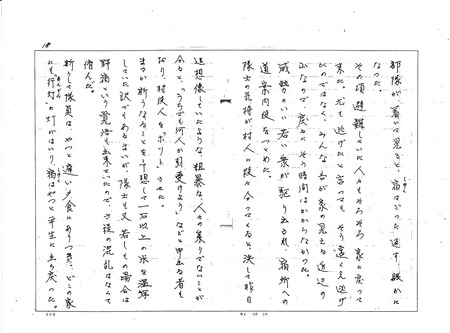 部隊が着いて見ると、宿はごった返す騒ぎに
なった。
その頃避難していた人々もそろそろ家に戻って
来た。尤も逃げたと言っても、そう遠くえ逃げ
たのではなく、みんな吾が家の見える近辺の
山なので、戻るにそう時間はかからなかった。
威勢のいい若い衆が駆り出され、宿所への
道案内役をつとめた。
隊士の気持が村人に段々分ってくると、決して昨日
迄想像していたような、粗暴な人々の集りでないことが
分ると、「うちでも何人か引受けよう」などと申出る者も
あり、村役人をホッとさせた。
まさか斯うなることを予想して一石以上の米を
していた訳でもあるまいが、隊士も又、若しもの場合は
野宿という覚悟も出来ていたので、さ程の混乱はなくて
済んだ。
斯うして隊員は、やっと遅い夕食にありつき、どこの家
にも行灯に灯がはいり、宿はやっと平生に立ち戻った。
18
20 20